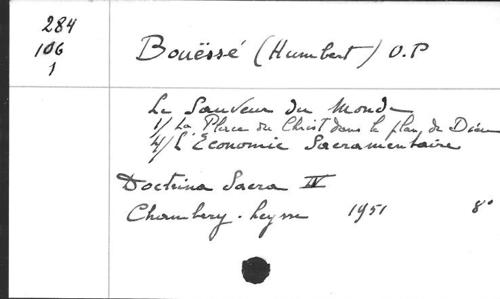 284
106
1
Bouëssé (Humbert) O.P
Le Sauveur du Monde
1/ La Place du Christ dans le plan de Dieu
4/ L'Économie Sacramentaire
Doctrina Sacra IV
Chambery-Leysse 1951 8°